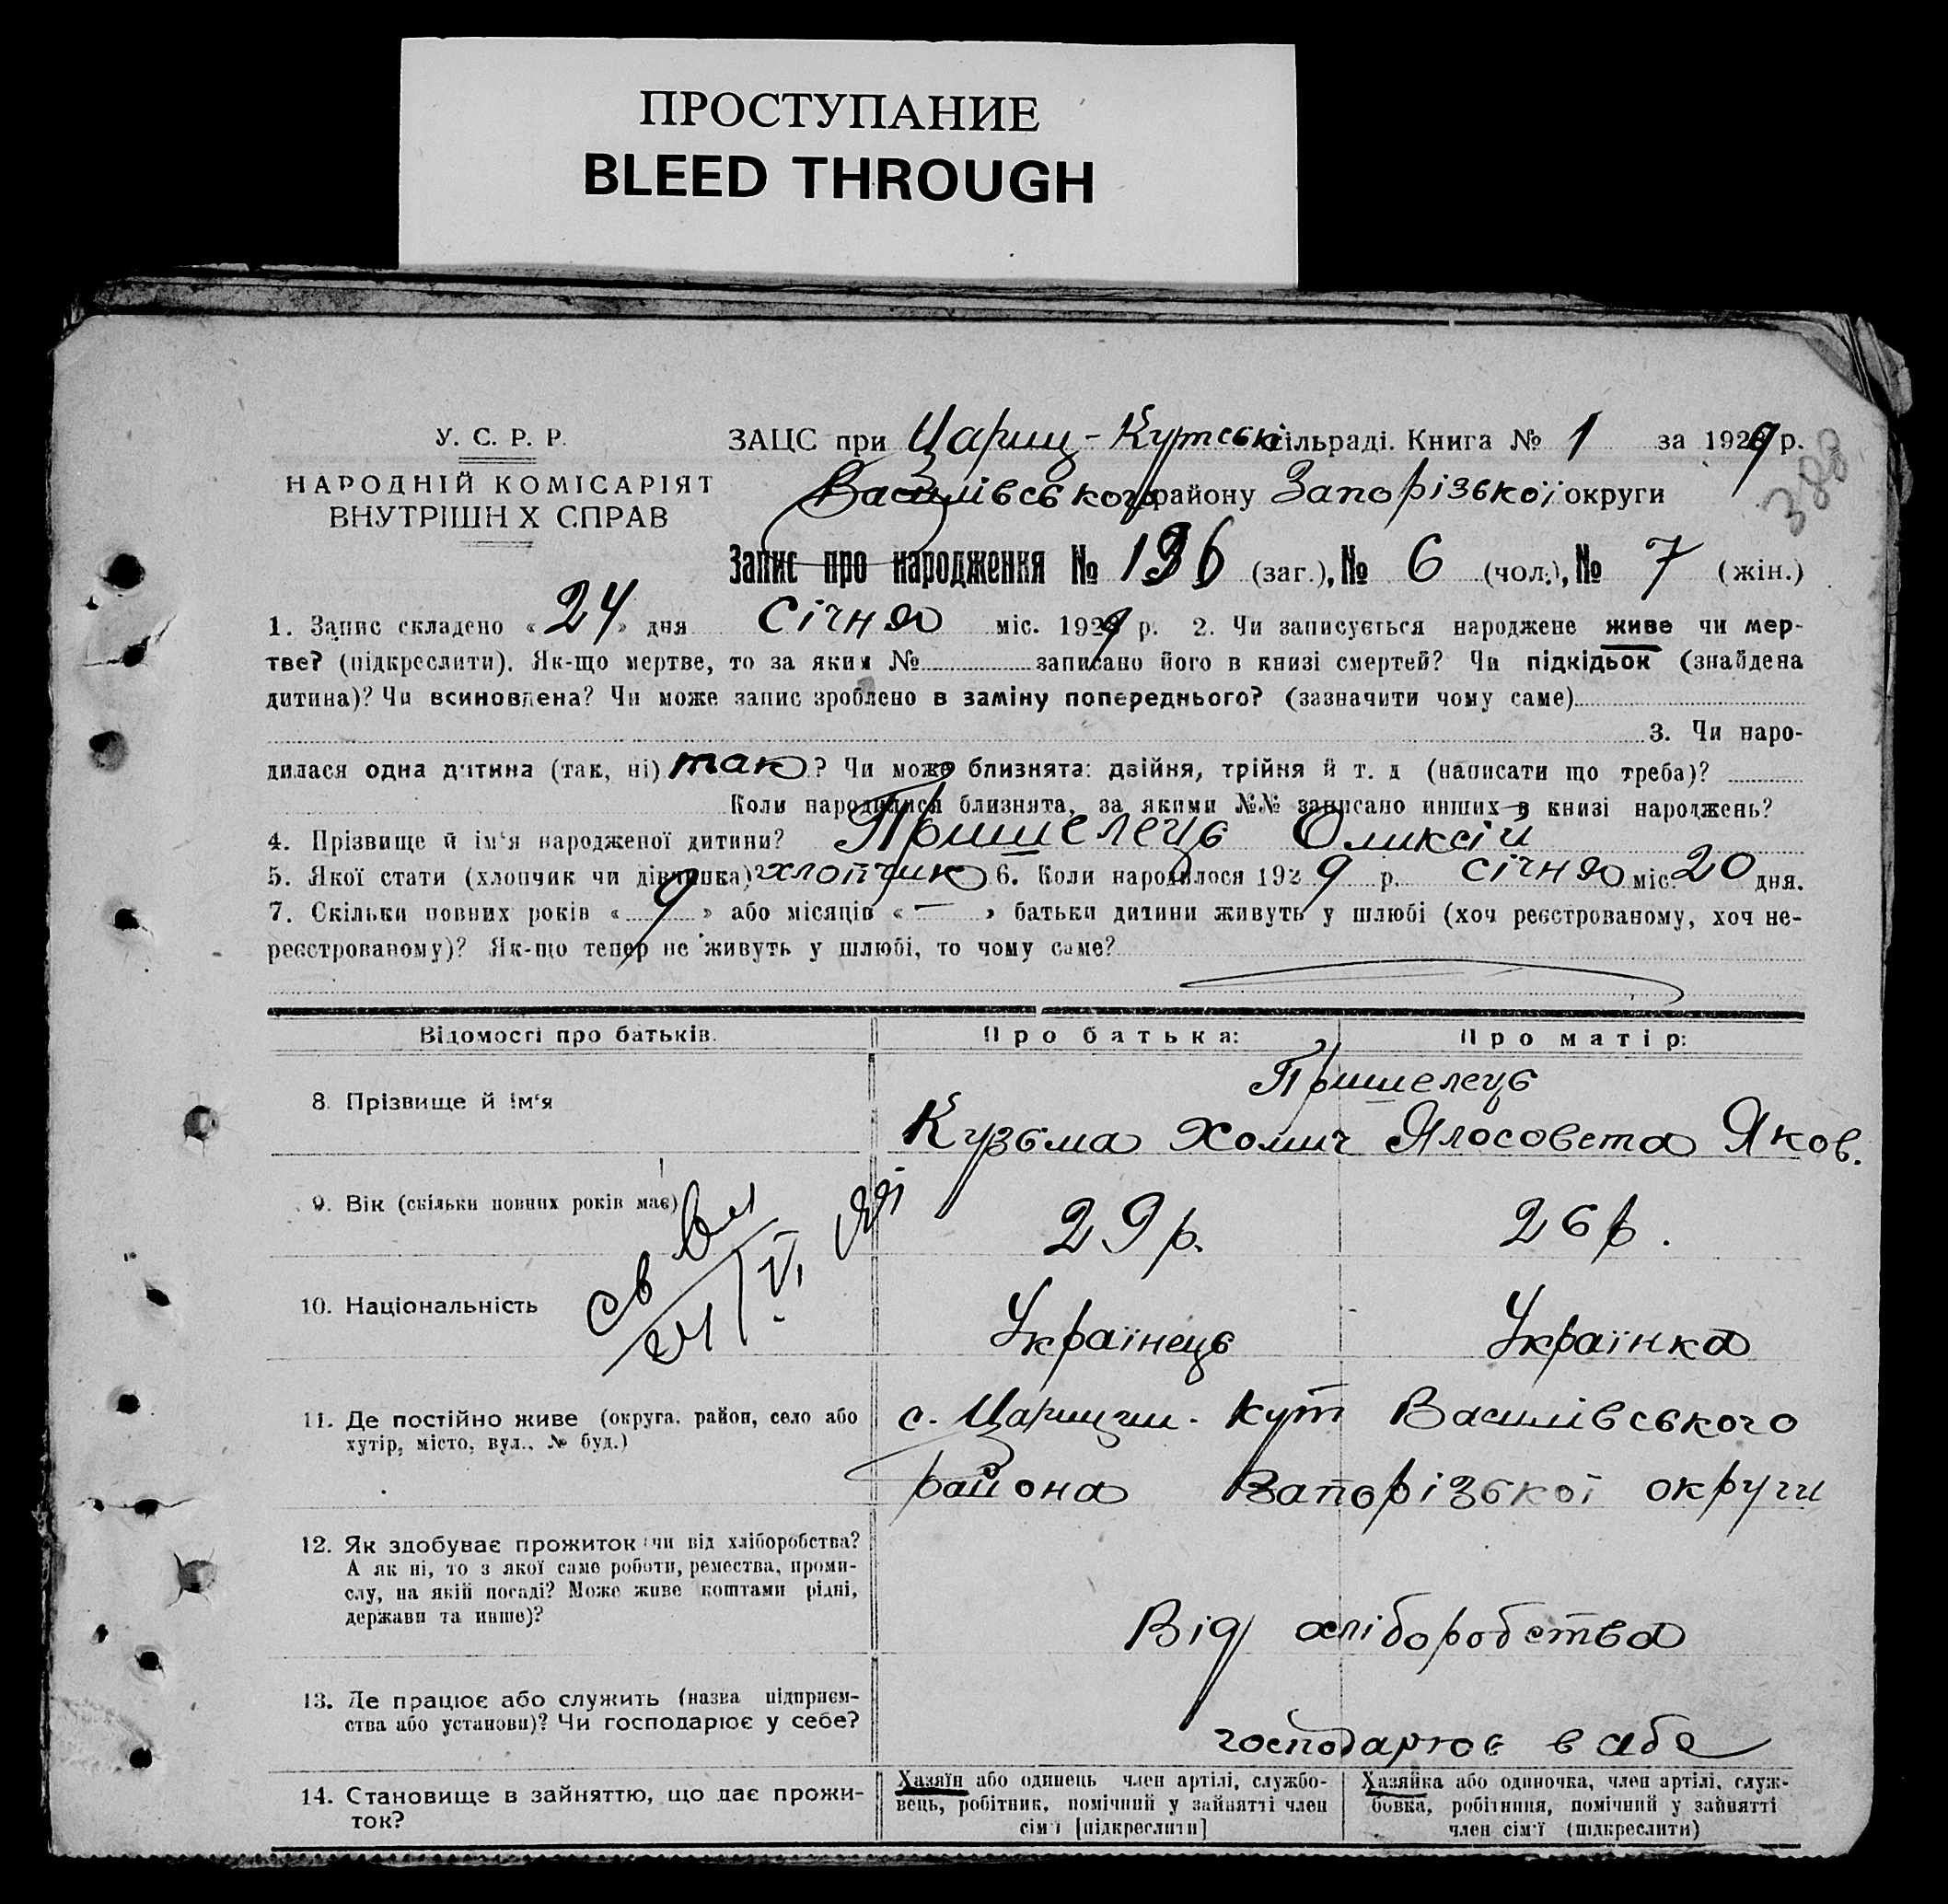 ПРОСТУПАНИЕ
BLEED THROUGH
У. С. Р. Р.
НАРОДНІЙ КОМІСАРІЯТ
ВНУТРІШН Х СПРАВ
388
ЗАЦС при Цариц-Кутські сільраді. Книга № 1 за 1929 р.
Василівського району Запорізької округи
Запис про народження № 136 (заг.), № 6 (чол.), № 7 (жін.)
1. Запис складено «24» дня січня міс. 1929 р. 2. Чи записується народжене живе чи мер-
тве? (підкреслити). Як-що мертве, то за яким № записано його в книзі смертей? Чи підкідьок (знайдена
дитина)? Чи всиновлена? Чи може запис зроблено в заміну попереднього? (зазначити чому саме)
3. Чи наро-
дилася одна дитина (так, ні) так? Чи може близнята: двійня, трійня й т. д (написати що треба)?
Коли народилися близнята, за якими №№ записано инших в книзі народжень?
4. Прізвище й ім'я народженої дитини? Пришелець Оликсій
5. Якої стати (хлопчик чи дівчинка)? хлопчик 6. Коли народилося 1929 р. січня міс. 20 дня.
7. Скільки повних років «9» або місяців «—» батьки дитини живуть у шлюбі (хоч реєстрованому, хоч не-
реєстрованому)? Як-що тепер не живуть у шлюбі, то чому саме?
Відомості про батьків. Про батька: Про матір:
Пришелець
8. Прізвище й ім'я Кузьма Хомич Ялосовета Яков.
9. Вік (скільки повних років має) 29 р. 26 р.
10. Національність Українець Українка
11. Де постійно живе (округа, район, село або
хутір, місто, вул., № буд.)
с. Царицин-Кут Василівського
района Запорізької округи
12. Як здобуває прожиток: чи від хліборобства?
А як ні, то з якої саме роботи, ремества, проми-
слу, на якій посаді? Може живе коштами рідні,
держави та инше)?
Від хліборобства
13. Де працює або служить (назва підприєм-
ства або установи)? Чи господарює у себе?
господарює в сабе
14. Становище в зайняттю, що дає прожи-
ток?
Хазяїн або одинець член артілі, службо-
вець, робітник, помічний у зайнятті член
сім'ї [підкреслити]
Хазяйка або одиночка, член артілі, служ-
бовка, робітниця, помічний у зайнятті
член сім'ї (підкреслити)